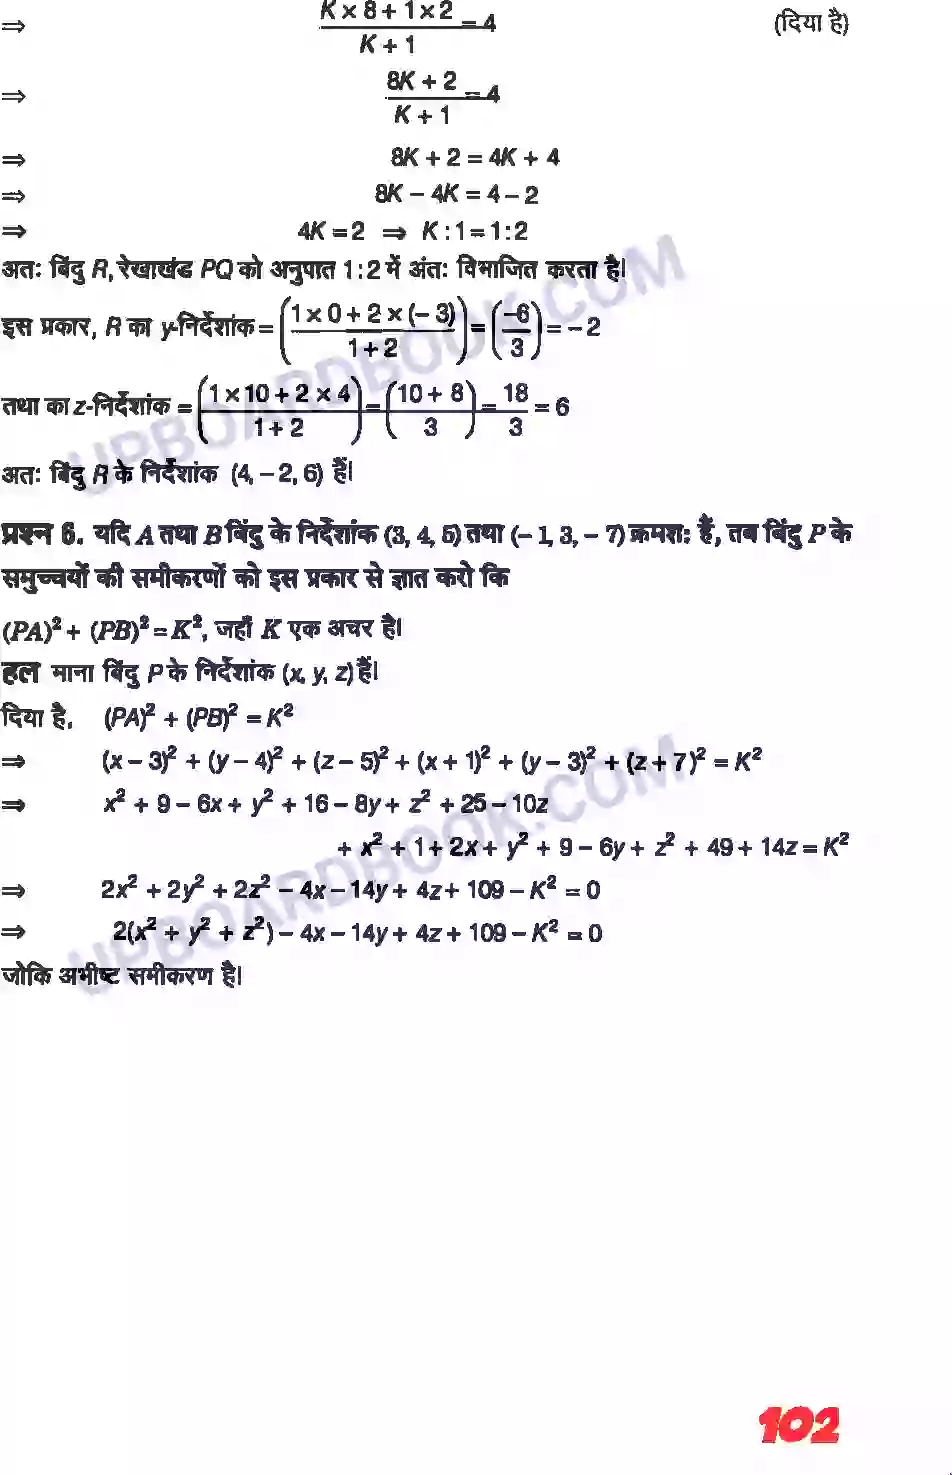 ⇒ (K × 8 + 1 × 2)/(K + 1) = 4 (दिया है)
⇒ (8K + 2)/(K + 1) = 4
⇒ 8K + 2 = 4K + 4
⇒ 8K – 4K = 4 – 2
⇒ 4K = 2 ⇒ K : 1 = 1 : 2
अतः बिंदु R, रेखाखंड PQ को अनुपात 1 : 2 में अंतः विभाजित करता है।
इस प्रकार, R का y-निर्देशांक = ((1 × 0 + 2 × (– 3))/(1 + 2)) = (–6/3) = – 2
तथा का z-निर्देशांक = ((1 × 10 + 2 × 4)/(1 + 2)) = ((10 + 8)/3) = 18/3 = 6
अतः बिंदु R के निर्देशांक (4, – 2, 6) हैं।
प्रश्न 6. यदि A तथा B बिंदु के निर्देशांक (3, 4, 5) तथा (– 1, 3, – 7) क्रमशः हैं, तब बिंदु P के
समुच्चयों की समीकरणों को इस प्रकार से ज्ञात करो कि
(PA)² + (PB)² = K², जहाँ K एक अचर है।
हल माना बिंदु P के निर्देशांक (x, y, z) हैं।
दिया है, (PA)² + (PB)² = K²
⇒ (x – 3)² + (y – 4)² + (z – 5)² + (x + 1)² + (y – 3)² + (z + 7)² = K²
⇒ x² + 9 – 6x + y² + 16 – 8y + z² + 25 – 10z
+ x² + 1 + 2x + y² + 9 – 6y + z² + 49 + 14z = K²
⇒ 2x² + 2y² + 2z² – 4x – 14y + 4z + 109 – K² = 0
⇒ 2(x² + y² + z²) – 4x – 14y + 4z + 109 – K² = 0
जोकि अभीष्ट समीकरण है।
UPBOARDBOOK.COM
UPBOARDBOOK.COM
102